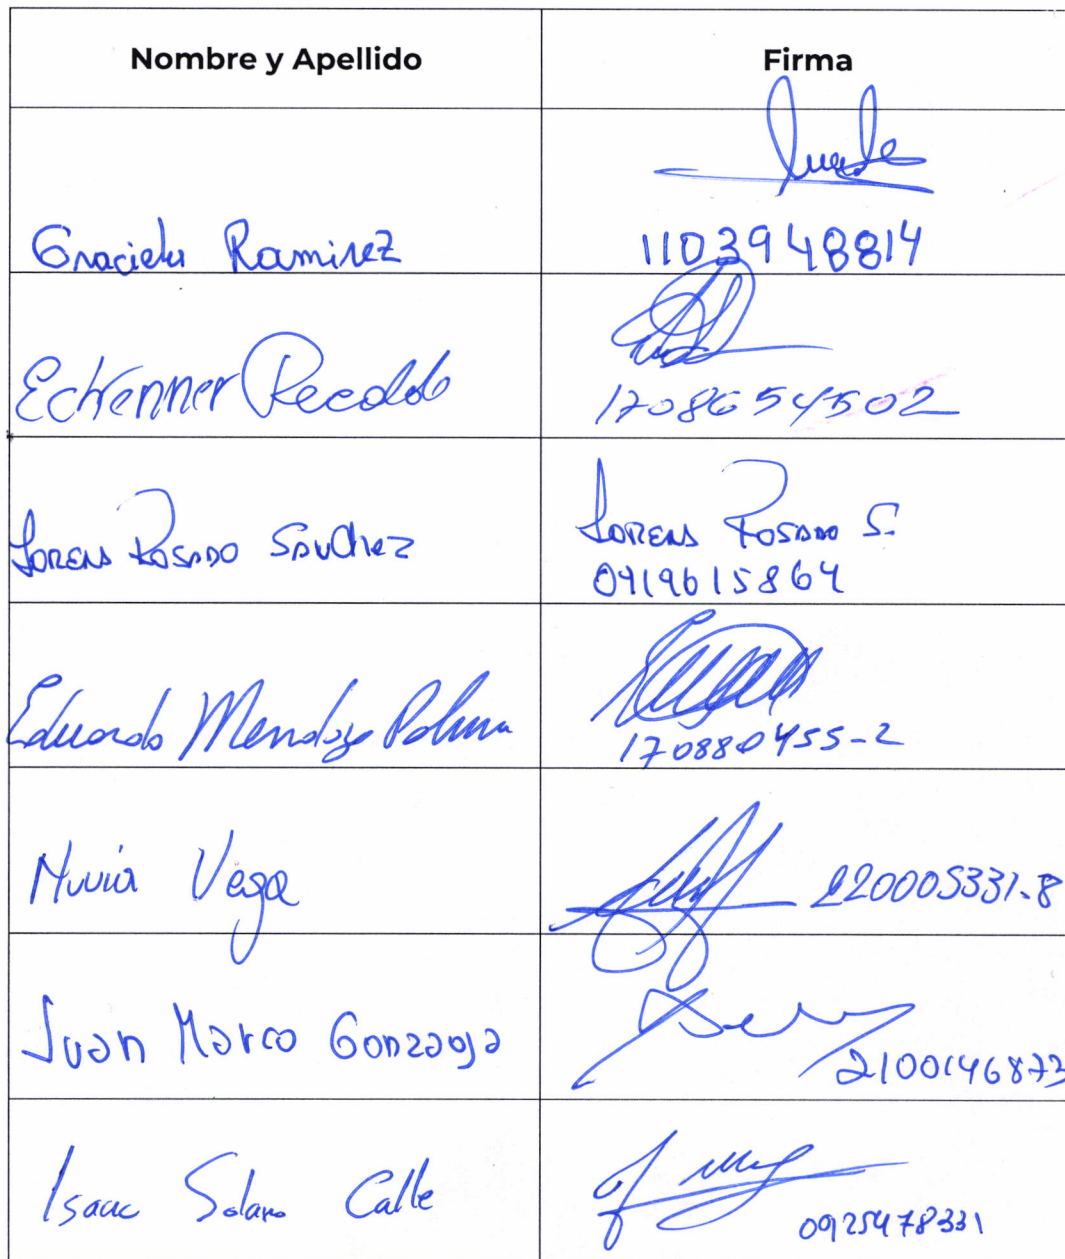 Nombre y Apellido Firma
Graciela Ramirez 1103948814
Recalde 1708654502
Lorena Rosado Sanchez Lorena Rosado S.
0919615864
Eduardo Mendoza 170880455-2
Nuvia Vega 220005331-8
Juan Marco Gonzaga 2100146873
Isaac Solano Calle 0925478331